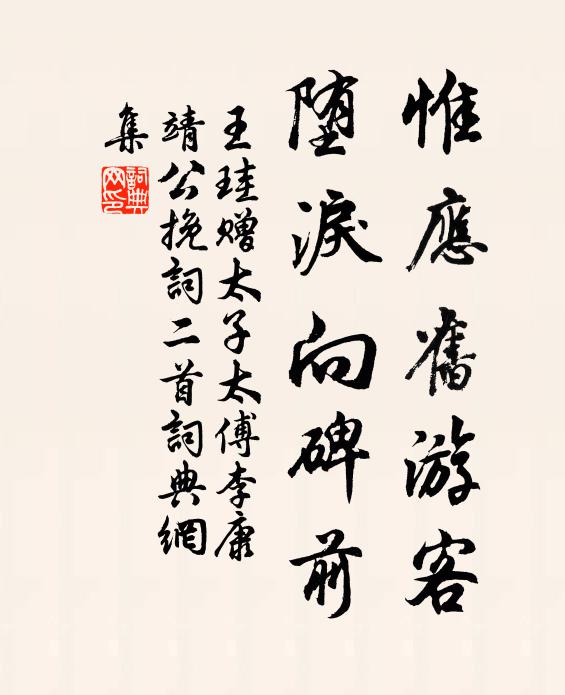 惟應舊游客
堕淚向碑前
王珪赠太子太傅李康
靖公挽詞二首詞典網
集
詞典网印